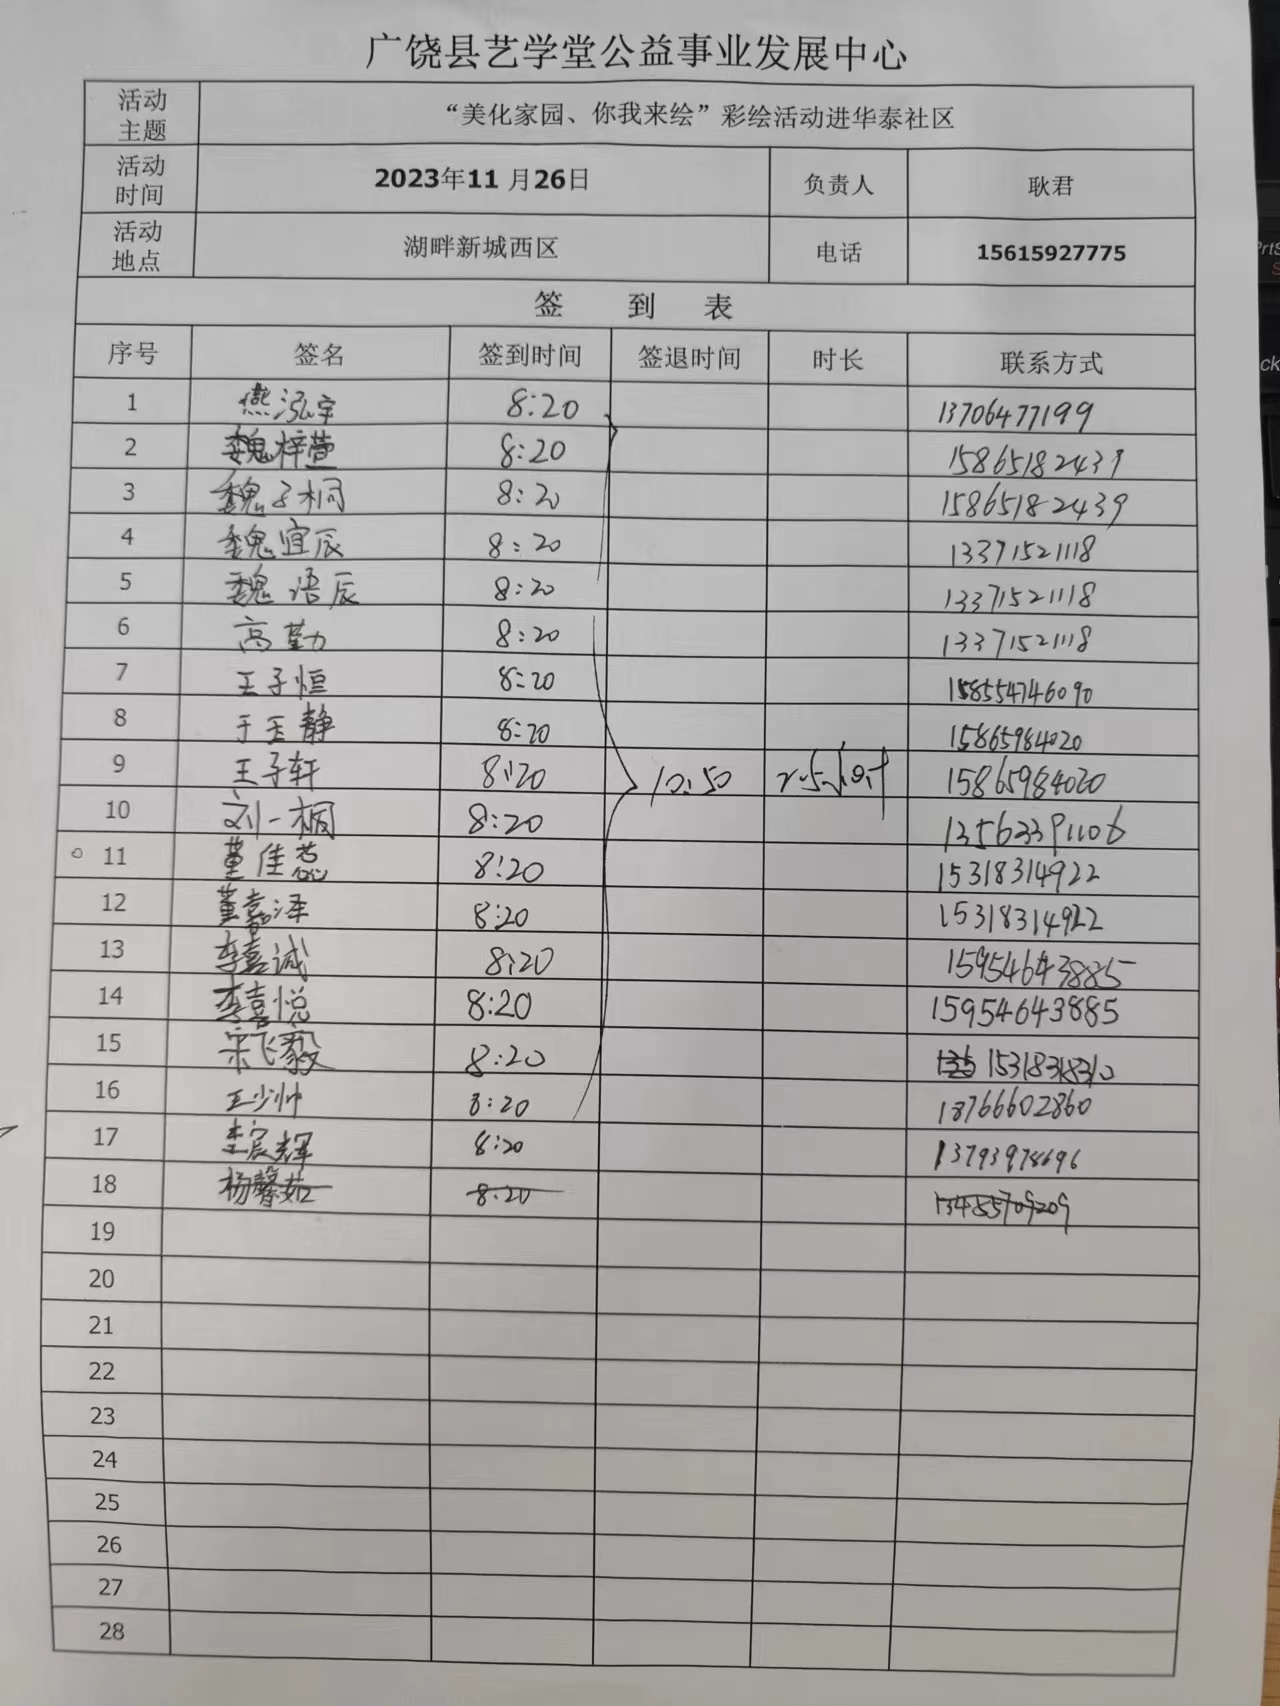 广饶县艺学堂公益事业发展中心
活动主题 “美化家园、你我来绘”彩绘活动进华泰社区
活动时间 2023年11月26日 负责人 耿君
活动地点 湖畔新城西区 电话 15615927775
签 到 表
序号 签名 签到时间 签退时间 时长 联系方式
1 燕泓宇 8:20 13706477199
2 魏梓萱 8:20 15865182439
3 魏子桐 8:20 15865182439
4 魏宜辰 8:20 13371521118
5 魏语辰 8:20 13371521118
6 高勤 8:20 13371521118
7 王子恒 8:20
8 于玉静 8:20 15865984020
9 王子轩 8:20 10:50 2.5小时 15865984020
10 刘一桐 8:20 13563391106
11 董佳蕊 8:20 15318314922
12 董嘉泽 8:20 15318314922
13 李嘉诚 8:20 15954643885
14 李嘉悦 8:20 15954643885
15 宋飞毅 8:20 15318318310
16 王少帅 8:20 18766602860
17 李宸辉 8:20
18 杨馨茹 8:20 13455709209
19
20
21
22
23
24
25
26
27
28
PrtS